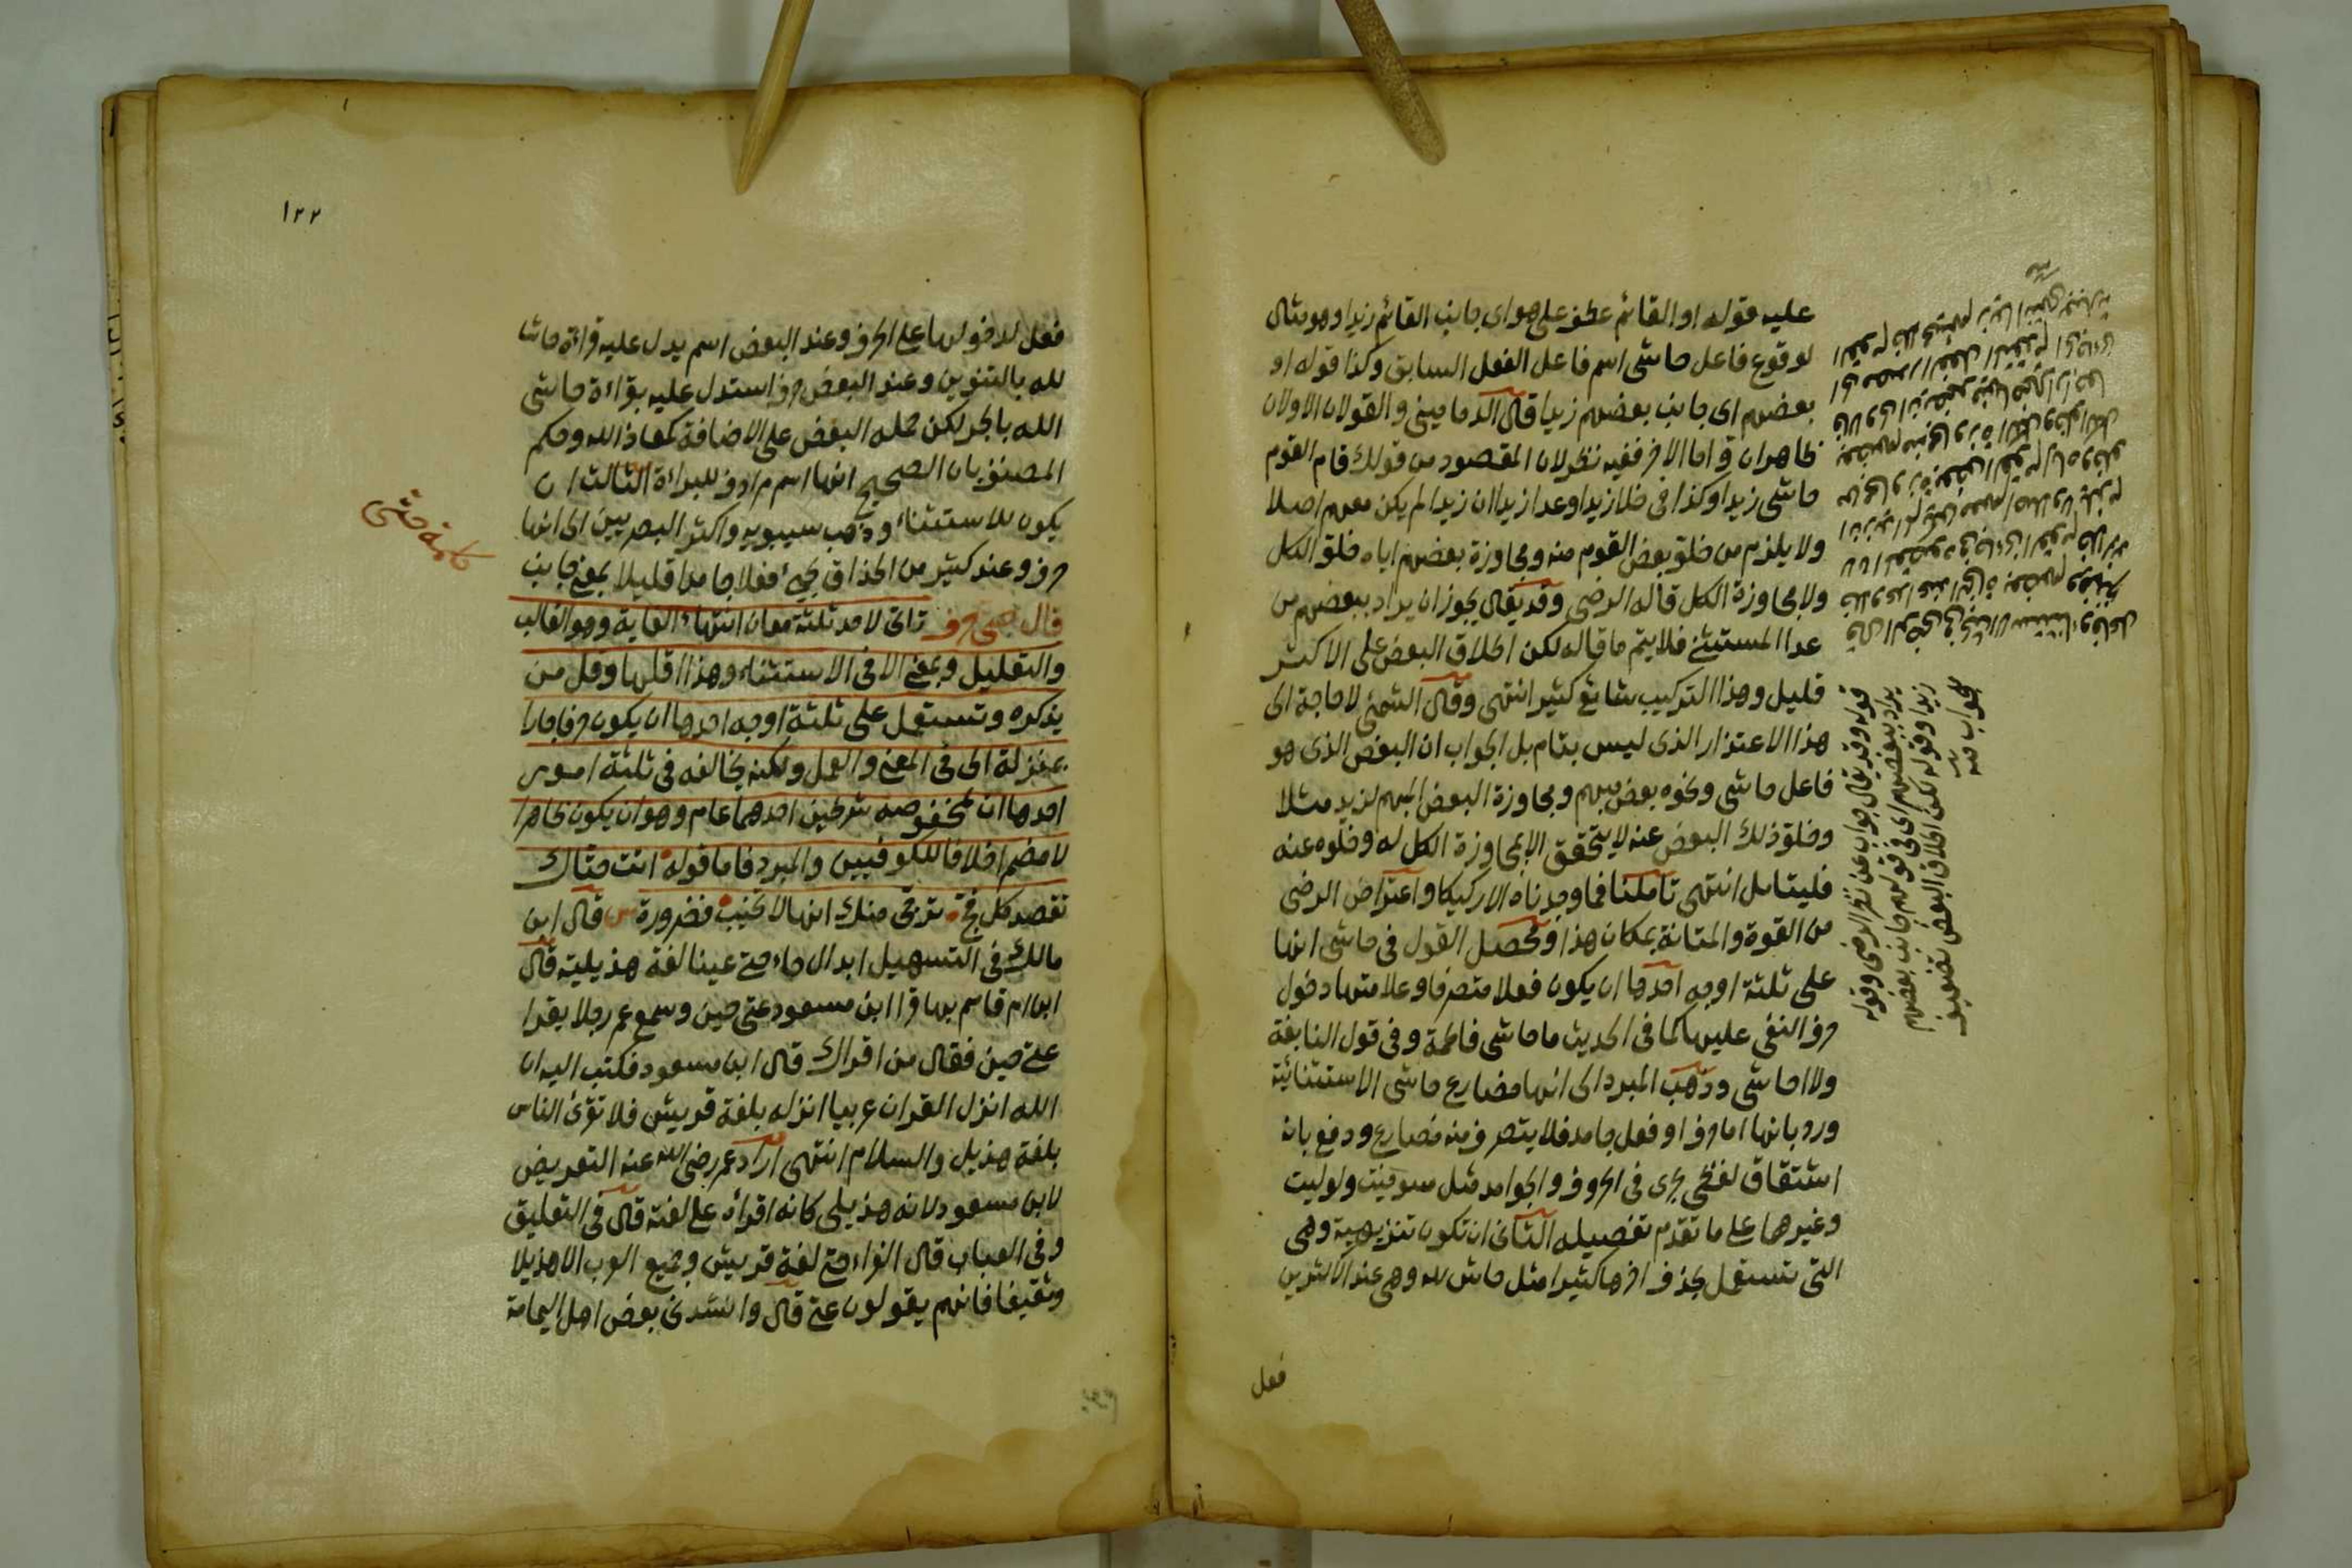 عليه قوله او القائم عطف على هو اى جانب القائم زيدا وهو مثال
لوقوع فاعل حاشى اسم فاعل الفعل السابق وكذا قوله او
بعضهم اى جانب بعضهم زيدا قال الدمامينى والقولان الاولان
ظاهران واما الاخر ففيه نظر لان المقصود من قولك قام القوم
حاشى زيدا وكذا فى خلا زيدا وعدا زيدا ان زيدا لم يكن معهم اصلا
ولا يلزم من خلو بعض القوم منه ومجاوزة بعضهم اياه خلو الكل
ولا مجاوزة الكل قاله الرضى وقد يقال يجوز ان يراد ببعضهم من
عدا المستثنى فلا يتم ما قاله لكن اطلاق البعض على الاكثر
قليل وهذا التركيب شائع كثير انتهى وقال الشمنى لا حاجة الى
هذا الاعتذار الذى ليس بتام بل الجواب ان البعض الذى هو
فاعل حاشى ونحوه بعض مبهم ومجاوزة البعض المبهم لزيد مثلا
وخلو ذلك البعض عنه لا يتحقق الا بمجاوزة الكل له وخلوه عنه
فليتامل انتهى تاملنا فما وجدناه الا ركيكا واعتراض الرضى
من القوة والمتانة بمكان هذا ومحصل القول فى حاشى انها
على ثلثة اوجه احدها ان يكون فعلا متصرفا وعلامتها دخول
حرف النفى عليها كما فى الحديث ما حاشى فاطمة وفى قول النابغة
ولا احاشى وذهب المبرد الى انها مضارع حاشى الاستثنائية
ورد بانها اما حرف او فعل جامد فلا يتصرف منه مضارع ودفع بانه
اشتقاق لفظى يجرى فى الحروف والجوامد مثل سوفيت ولوليت
وغيرهما على ما تقدم تفصيله الثانى ان تكون تنزيهية وهى
التى تستعمل بحذف اخرها كثيرا مثل حاش لله وهى عند الاكثرين
فعل
قوله وقد يقال جواب عن نظر الرضى وقوله
يراد ببعضهم اى فى قولهم جانب بعضهم
زيدا وقوله لكن اطلاق البعض تضعيف
لجواب منه
١٢٢
فعل لدخولها على الحرف وعند البعض اسم يدل عليه قراءة حاشا
لله بالتنوين وعند البعض حرف استدل عليه بقراءة حاشى
الله بالجر لكن حمله البعض على الاضافة كمعاذ الله وحكم
المصنف بان الصحيح انها اسم مرادف للبراءة الثالث ان
يكون للاستثناء وذهب سيبويه واكثر البصريين الى انها
حرف وعند كثير من الحذاق يجئ فعلا جامدا قليلا بمعنى جانب
قال حتى حرف تاتى لاحد ثلثة معان انتهاء الغاية وهو الغالب
والتعليل وبمعنى الا فى الاستثناء وهذا اقلها وقل من
يذكره وتستعمل على ثلثة اوجه احدها ان يكون حرفا جارا
بمنزلة الى فى المعنى والعمل ولكنه يخالفه فى ثلثة امور
احدها ان لمخفوضه شرطين احدهما عام وهو ان يكون ظاهرا
لا مضمرا خلافا للكوفيين والمبرد فاما قوله اتت حتاك
تقصد كل فج ترجى منك انها لا تخيب فضرورة قال ابن
مالك فى التسهيل ابدال حاء حتى عينا لغة هذيلية قال
ابن ام قاسم بها قرا ابن مسعود عتى حين وسمع عمر رجلا يقرا
عتى حين فقال من اقراك قال ابن مسعود فكتب اليه ان
الله انزل القران عربيا انزله بلغة قريش فلا تقرئ الناس
بلغة هذيل والسلام انتهى اراد عمر رضى الله عنه التعريض
لابن مسعود لانه هذيلى كانه اقراه على لغته قال فى التعليق
وفى العباب قال الفراء حتى لغة قريش وجميع العرب الا هذيلا
وثقيفا فانهم يقولون عتى قال وانشدنى بعض اهل اليمامة
كلمة حتى